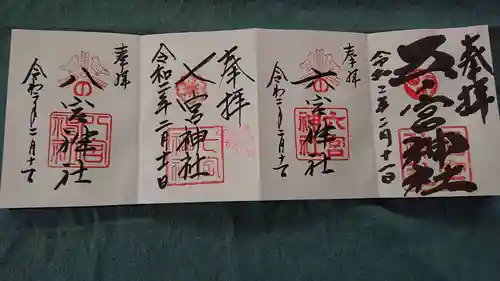 奉拝
五宮神社
令和二年二月十一日
奉拝
六宮神社
令和二年二月十一日
奉拝
七宮神社
令和二年二月十一日
奉拝
八宮神社
令和二年二月十一日